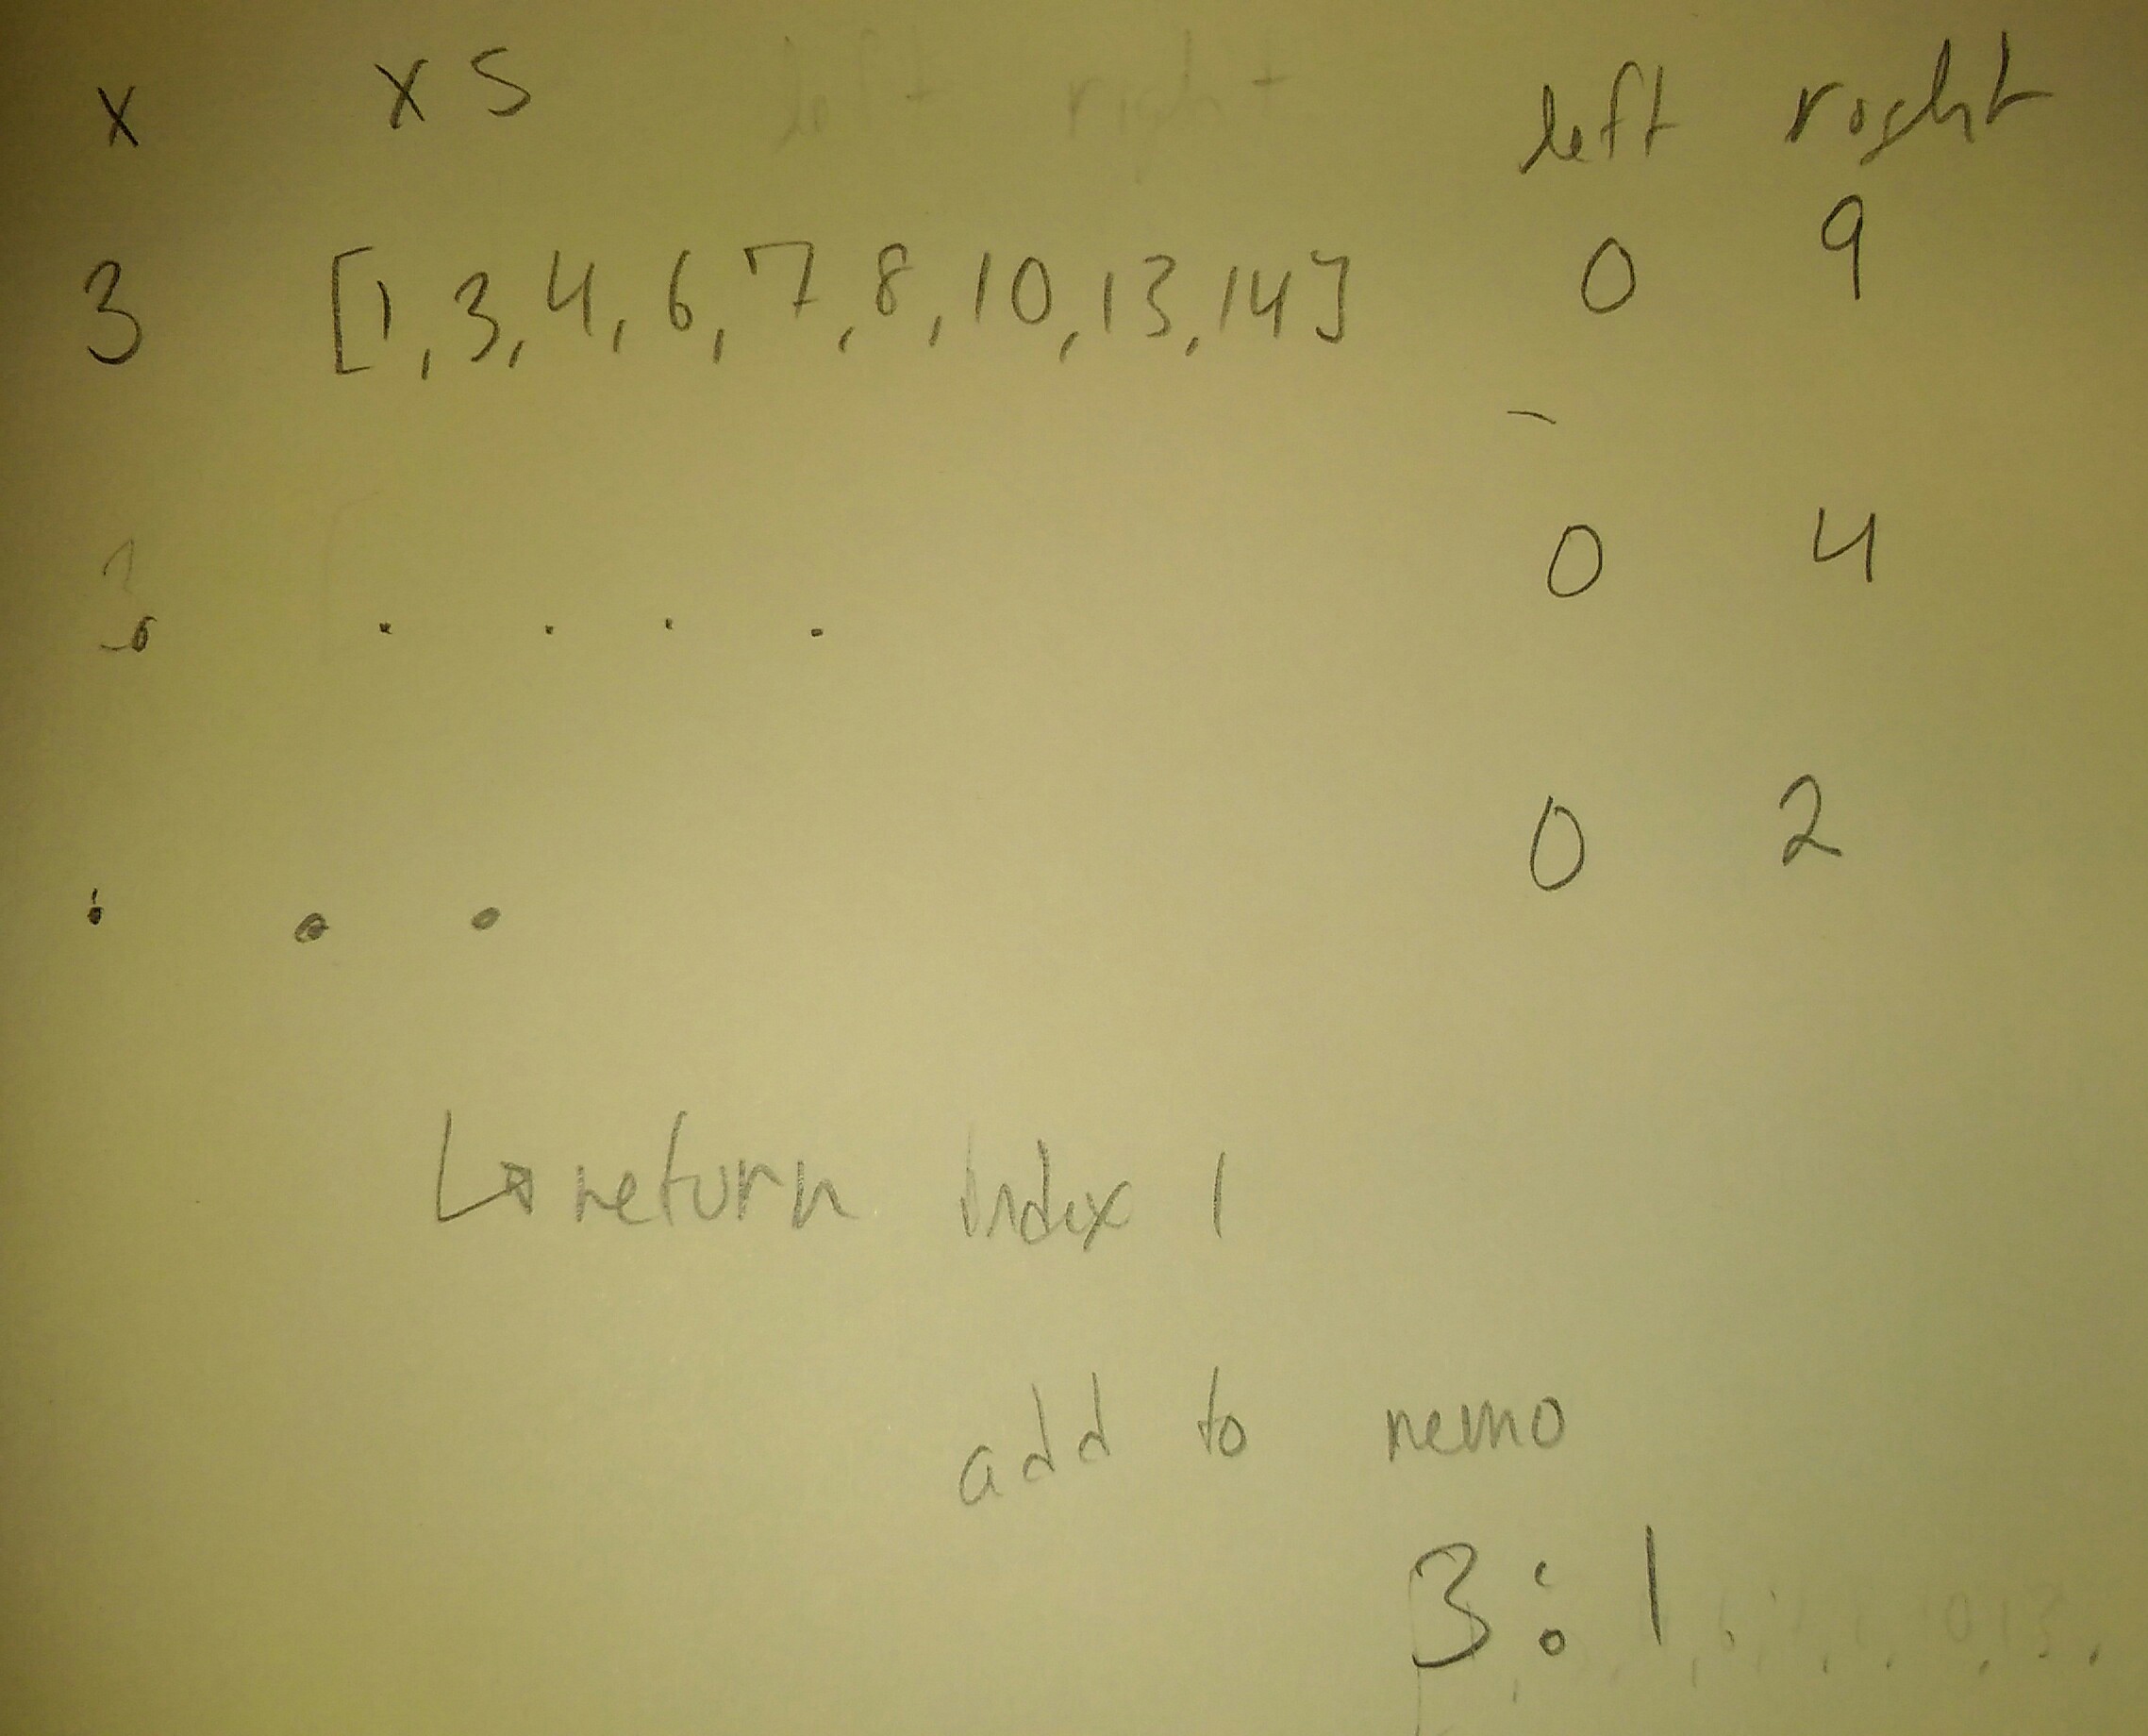 x xs left right
3 [1,3,4,6,7,8,10,13,14] 0 9
0 4
0 2
return index 1
add to memo
3:1